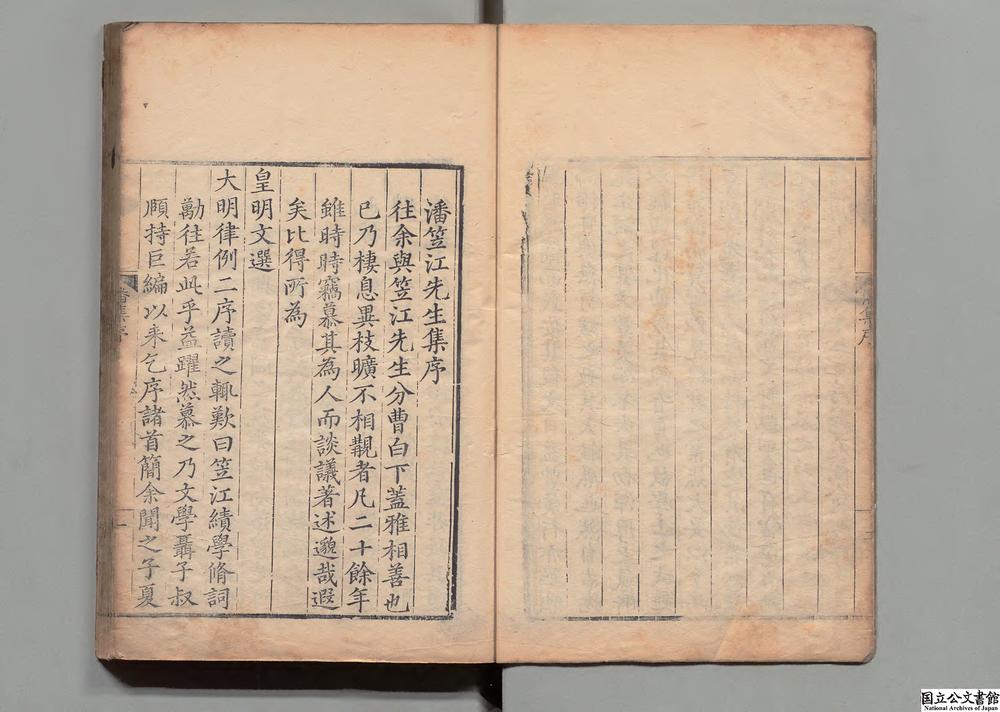 潘笠江先生集序
往余與笠江先生分曹白下蓋雅相善也
已乃棲息異枝曠不相覩者凡二十餘年
雖時時竊慕其為人而談議著述邈哉遐
矣比得所為
皇明文選
大明律例二序讀之輒歎曰笠江績學脩詞
勤往若此乎益躍然慕之乃文學聶子叔
頫持巨編以来乞序諸首簡余聞之子夏
集序
一
国立公文書館
National Archives of Japan